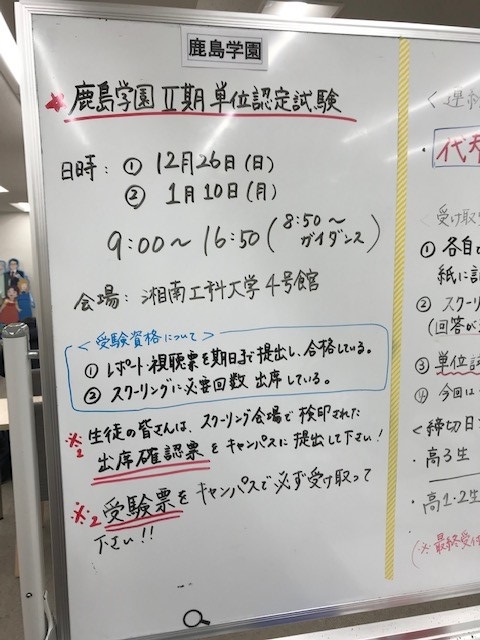 鹿島学園
鹿島学園Ⅱ期単位認定試験
日時：① 12月26日（日）
② 1月10日（月）
9:00～16:50（8:50～ガイダンス）
会場：湘南工科大学4号館
＜受験資格について＞
① レポート・視聴票を期日まで提出し、合格している。
② スクーリングに必要回数 出席している。
※1 生徒の皆さんは、スクーリング会場で検印された
出席確認票をキャンパスに提出して下さい！
※2 受験票をキャンパスで必ず受け取って
下さい!!
代
受け取
① 各自
紙に記
② スクーリ
(回答が
③ 単位試
④ 今回は
＜締切日
・高3生
・高1・2生
(※最終受付